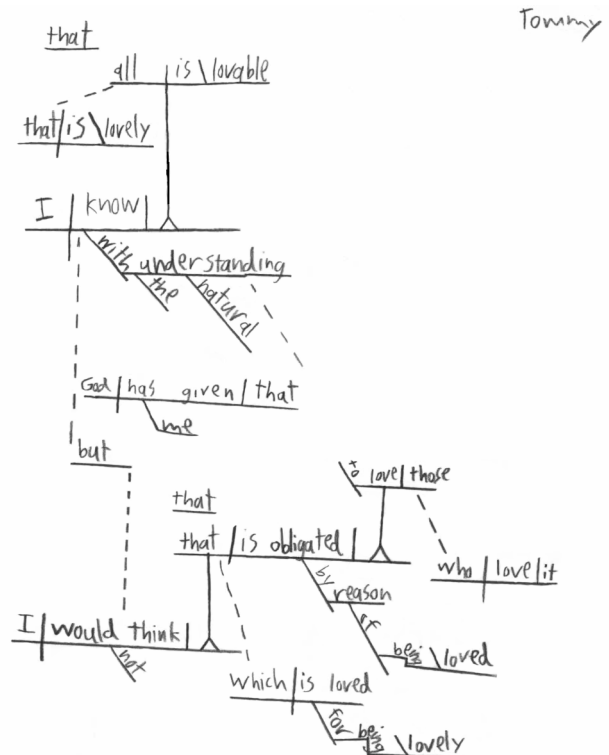 Tommy
that
all is lovable
that is lovely
I know
with understanding
the natural
God has given that
me
but
to love those
that
that is obligated
who love it
by reason
of
being loved
I would think
not
which is loved
for being lovely